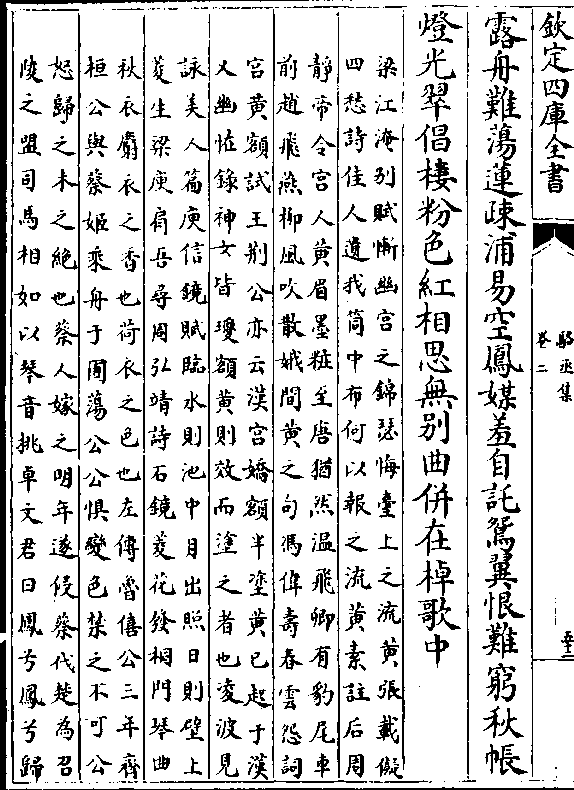 欽定四庫全書
駱丞集
卷二
露舟難蕩蓮踈浦易空鳳媒羞自託鴛翼恨難窮秋帳
燈光翠倡樓粉色紅相思無別曲併在棹歌中
梁江淹别賦慚幽宫之錦瑟悔臺上之流黄張載儗
四愁詩佳人遺我筒中布何以報之流黄素註后周
靜帝令宫人黄眉墨粧至唐猶然温飛卿有豹尾車
前趙飛燕柳風吹散蛾間黄之句馮偉壽春雲怨詞
宫黄額試王荆公亦云漢宫嬌額半塗黄已起于漢
又幽怪錄神女皆瓊額黄則效而塗之者也凌波見
詠美人篇庾信鏡賦臨水則池中月出照日則壁上
菱生梁庾肩吾尋周弘靖詩石鏡菱花發桐門琴曲
秋衣麝衣之香也荷衣之色也左傳魯僖公三年齊
桓公與蔡姬乘舟于囿蕩公公懼變色禁之不可公
怒歸之未之絶也蔡人嫁之明年遂侵蔡代楚為召
陵之盟司馬相如以琴音挑卓文君曰鳳兮鳳兮歸